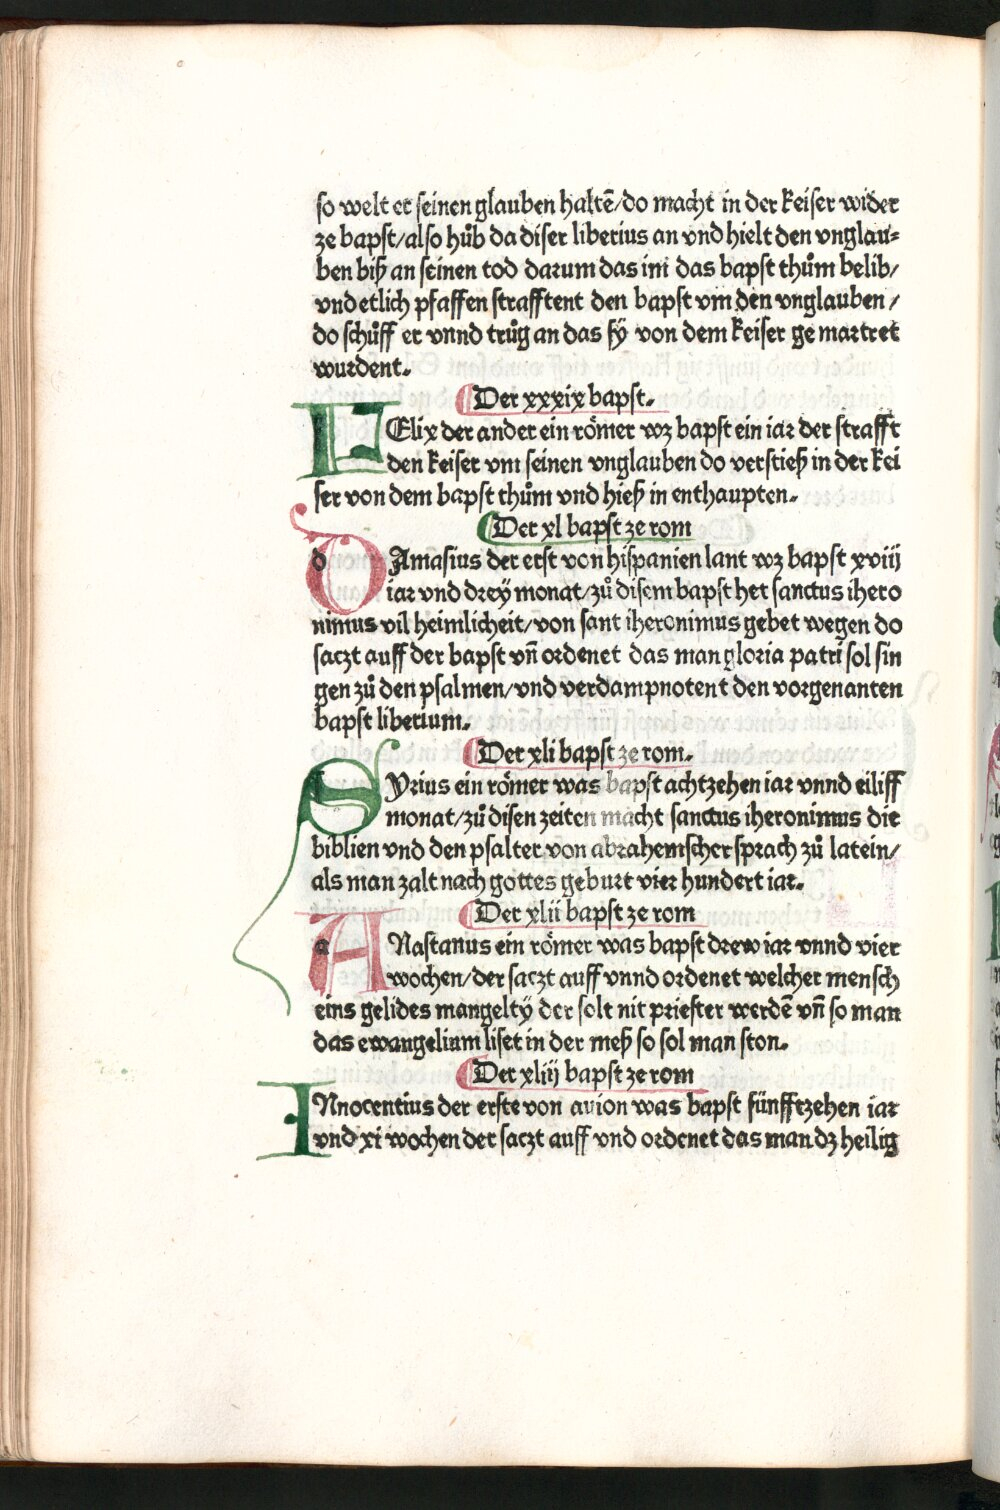 so welt er seinen glauben haltē/do macht in der keiser wider
ze bapst/also hůb da diser liberius an vnd hielt den vnglau=
ben biß an seinen tod darum das im das bapst thům belib/
vnd etlich pfaffen strafftent den bapst vm den vnglauben/
do schůff er vnnd trůg an das sÿ von dem keiser ge martret
wurdent.
Der xxxix bapst.
FElix der ander ein römer wz bapst ein iar der strafft
den keiser vm seinen vnglauben do verstieß in der kei
ser von dem bapst thům vnd hieß in enthaupten.
Der xl bapst ze rom
DAmasius der erst von hispanien lant wz bapst xviij
iar vnd dreÿ monat/zů disem bapst het sanctus ihero
nimus vil heimlicheit/von sant iheronimus gebet wegen do
saczt auff der bapst vn̄ ordenet das man gloria patri sol sin
gen zů den psalmen/vnd verdampnotent den vorgenanten
bapst liberium.
Der xli bapst ze rom.
SYrius ein römer was bapst achtzehen iar vnnd eiliff
monat/zů disen zeiten macht sanctus iheronimus die
biblien vnd den psalter von abrahemscher sprach zů latein/
als man zalt nach gottes geburt vier hundert iar.
Der xlii bapst ze rom
ANastanus ein römer was bapst drew iar vnnd vier
wochen/der saczt auff vnnd ordenet welcher mensch
eins gelides mangeltÿ der solt nit priester werdē vn̄ so man
das ewangelium liset in der meß so sol man ston.
Der xliij bapst ze rom
INnocentius der erste von avion was bapst fünfftzehen iar
vnd xi wochen der saczt auff vnd ordenet das man dz heilig